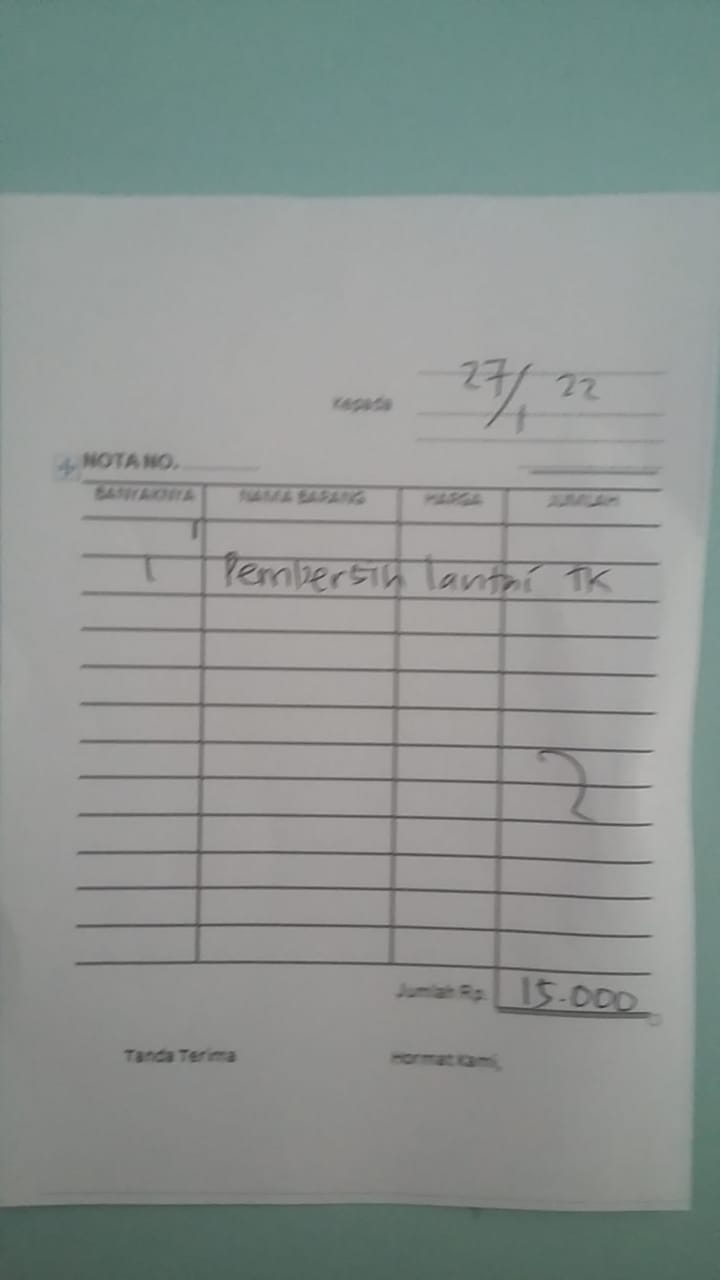 27/1 22
Kepada
NOTA NO.
BANYAKNYA NAMA BARANG HARGA JUMLAH
1 Pembersih lantai TK
Jumlah Rp. 15.000
Tanda Terima Hormat Kami,